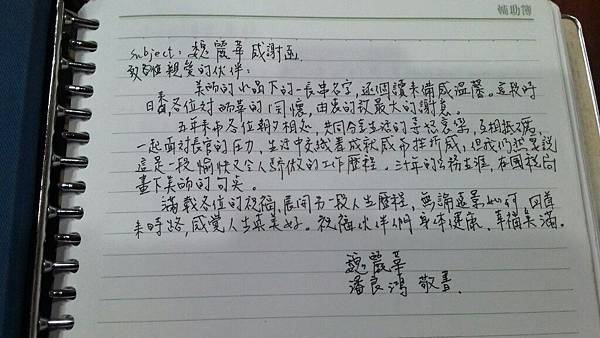 輔助簿
subject: 魏麗華感謝函
致 親愛的伙伴:
美師的水晶下的一長串名字,逐個讀來備感溫馨。這段時
日來,各位對麗華的關懷,由衷的致最大的謝意。
五年來和各位朝夕相處,共同分享生活的喜怒哀樂,互相扶攜,
一起面對長官的壓力,生活中交織著成就感和挫折感,但我們
這是一段愉快又令人驕傲的工作歷程。三十年的公務生涯,在國稅局
畫下美麗的句點。
滿載各位的祝福,展開另一段人生歷程,無論遠景如何,回首
來時路,感覺人生最美好。祝福伙伴們身體健康,幸福美滿。
魏麗華
潘良鴻 敬書.